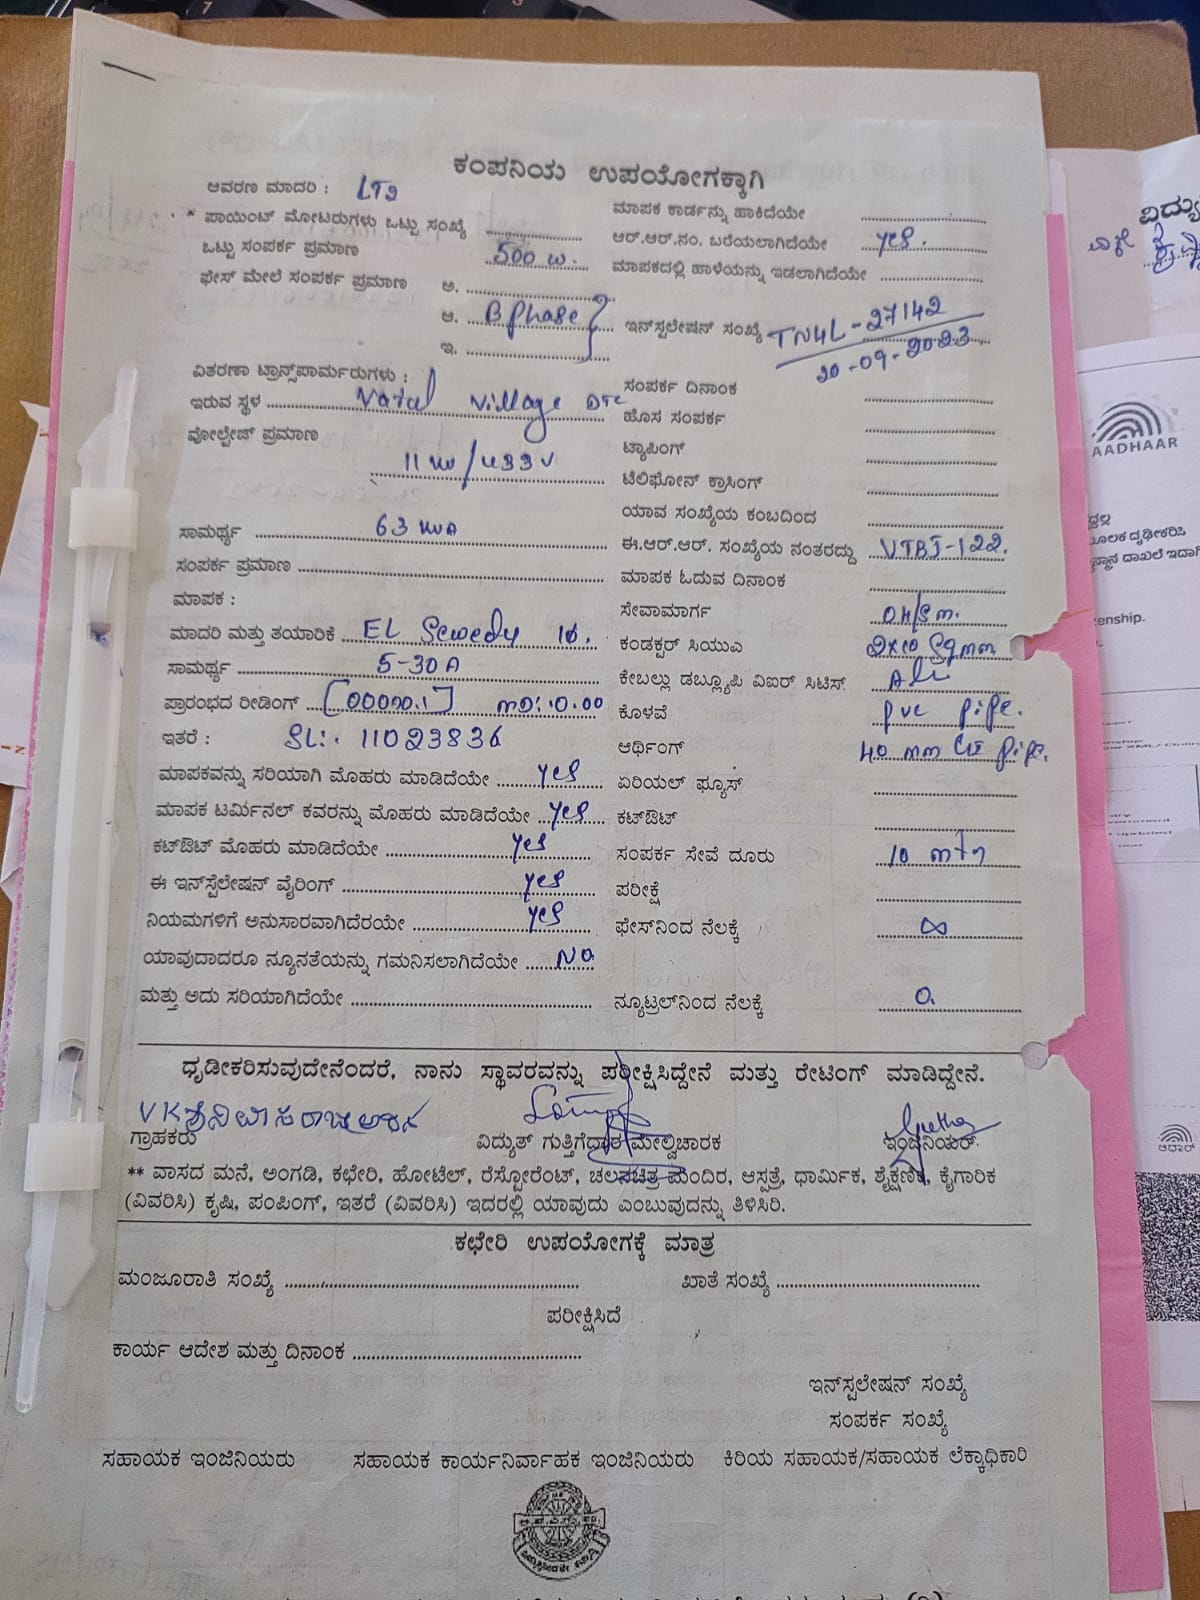 ಕಂಪನಿಯ ಉಪಯೋಗಕ್ಕಾಗಿ
ಆವರಣ ಮಾದರಿ : LT2
* ಪಾಯಿಂಟ್ ಮೋಟರುಗಳು ಒಟ್ಟು ಸಂಖ್ಯೆ
ಒಟ್ಟು ಸಂಪರ್ಕ ಪ್ರಮಾಣ 500 W.
ಫೇಸ್ ಮೇಲೆ ಸಂಪರ್ಕ ಪ್ರಮಾಣ ಅ.
ಆ. B phase
ಇ.
ವಿತರಣಾ ಟ್ರಾನ್ಸ್‌ಪಾರ್ಮರುಗಳು :
ಇರುವ ಸ್ಥಳ Village DTC
ವೋಲ್ಟೇಜ್ ಪ್ರಮಾಣ
11 / 433 V
ಸಾಮರ್ಥ್ಯ 63
ಸಂಪರ್ಕ ಪ್ರಮಾಣ
ಮಾಪಕ :
ಮಾದರಿ ಮತ್ತು ತಯಾರಿಕೆ EL Sewedy 1ф.
ಸಾಮರ್ಥ್ಯ 5-30A
ಪ್ರಾರಂಭದ ರೀಡಿಂಗ್ [00000.1] MD: 0.00
ಇತರೆ : SL: 11023836
ಮಾಪಕವನ್ನು ಸರಿಯಾಗಿ ಮೊಹರು ಮಾಡಿದೆಯೇ yes
ಮಾಪಕ ಟರ್ಮಿನಲ್ ಕವರನ್ನು ಮೊಹರು ಮಾಡಿದೆಯೇ yes
ಕಟ್‌ಔಟ್ ಮೊಹರು ಮಾಡಿದೆಯೇ yes
ಈ ಇನ್‌ಸ್ಪೆಲೇಷನ್ ವೈರಿಂಗ್ yes
ನಿಯಮಗಳಿಗೆ ಅನುಸಾರವಾಗಿದೆರಯೇ yes
ಯಾವುದಾದರೂ ನ್ಯೂನತೆಯನ್ನು ಗಮನಿಸಲಾಗಿದೆಯೇ NO
ಮತ್ತು ಅದು ಸರಿಯಾಗಿದೆಯೇ
ಮಾಪಕ ಕಾರ್ಡನ್ನು ಹಾಕಿದೆಯೇ
ಆರ್.ಆರ್.ನಂ. ಬರೆಯಲಾಗಿದೆಯೇ yes.
ಮಾಪಕದಲ್ಲಿ ಹಾಳೆಯನ್ನು ಇಡಲಾಗಿದೆಯೇ
ಇನ್‌ಸ್ಪಲೇಷನ್ ಸಂಖ್ಯೆ TN4L-27142
20-09-2023
ಸಂಪರ್ಕ ದಿನಾಂಕ
ಹೊಸ ಸಂಪರ್ಕ
ಟ್ಯಾಪಿಂಗ್
ಟೆಲಿಫೋನ್ ಕ್ರಾಸಿಂಗ್
ಯಾವ ಸಂಖ್ಯೆಯ ಕಂಬದಿಂದ
ಈ.ಆರ್.ಆರ್. ಸಂಖ್ಯೆಯ ನಂತರದ್ದು VTBJ-122.
ಮಾಪಕ ಓದುವ ದಿನಾಂಕ
ಸೇವಾಮಾರ್ಗ OH/Sm.
ಕಂಡಕ್ಟರ್ ಸಿಯುಎ 2x10 Sqmm
ಕೇಬಲ್ಲು ಡಬ್ಲ್ಯೂಪಿ ವಿಐರ್ ಸಿಟಿಸ್
ಕೊಳವೆ pvc pipe.
ಆರ್ಥಿಂಗ್ 40 mm GI pipe.
ಏರಿಯಲ್ ಫ್ಯೂಸ್
ಕಟ್‌ಔಟ್
ಸಂಪರ್ಕ ಸೇವೆ ದೂರು 10 mtr
ಪರೀಕ್ಷೆ
ಫೇಸ್‌ನಿಂದ ನೆಲಕ್ಕೆ ∞
ನ್ಯೂಟ್ರಲ್‌ನಿಂದ ನೆಲಕ್ಕೆ 0.
ಧೃಡೀಕರಿಸುವುದೇನೆಂದರೆ, ನಾನು ಸ್ಥಾವರವನ್ನು ಪರೀಕ್ಷಿಸಿದ್ದೇನೆ ಮತ್ತು ರೇಟಿಂಗ್ ಮಾಡಿದ್ದೇನೆ.
ಗ್ರಾಹಕರು ವಿದ್ಯುತ್ ಗುತ್ತಿಗೆದಾರ ಮೇಲ್ವಿಚಾರಕ ಇಂಜಿನಿಯರ್
** ವಾಸದ ಮನೆ, ಅಂಗಡಿ, ಕಛೇರಿ, ಹೋಟೆಲ್, ರೆಸ್ಟೋರೆಂಟ್, ಚಲನಚಿತ್ರ ಮಂದಿರ, ಆಸ್ಪತ್ರೆ, ಧಾರ್ಮಿಕ, ಶೈಕ್ಷಣಿಕ, ಕೈಗಾರಿಕ
(ವಿವರಿಸಿ) ಕೃಷಿ, ಪಂಪಿಂಗ್, ಇತರೆ (ವಿವರಿಸಿ) ಇದರಲ್ಲಿ ಯಾವುದು ಎಂಬುವುದನ್ನು ತಿಳಿಸಿರಿ.
ಕಛೇರಿ ಉಪಯೋಗಕ್ಕೆ ಮಾತ್ರ
ಮಂಜೂರಾತಿ ಸಂಖ್ಯೆ ಖಾತೆ ಸಂಖ್ಯೆ
ಪರೀಕ್ಷಿಸಿದೆ
ಕಾರ್ಯ ಆದೇಶ ಮತ್ತು ದಿನಾಂಕ
ಇನ್‌ಸ್ಪಲೇಷನ್ ಸಂಖ್ಯೆ
ಸಂಪರ್ಕ ಸಂಖ್ಯೆ
ಸಹಾಯಕ ಇಂಜಿನಿಯರು ಸಹಾಯಕ ಕಾರ್ಯನಿರ್ವಾಹಕ ಇಂಜಿನಿಯರು ಕಿರಿಯ ಸಹಾಯಕ/ಸಹಾಯಕ ಲೆಕ್ಕಾಧಿಕಾರಿ
AADHAAR
ಆಧಾರ್